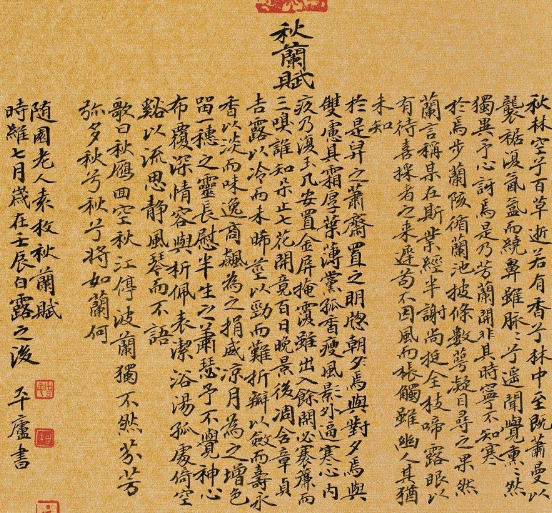 秋蘭賦
秋林空兮百草逝若有香兮林中至既蕭曼以
襲裾復氤氳而繞鼻雖脈脈兮遙聞覺熏熏然
獨異予心訝焉是乃芳蘭開非其時寧不知寒
於焉步蘭陔循蘭池披條數萼凝目尋之果然
蘭言稱某在斯業經半謝尚挺全枝啼露眼以
有待喜採者之來遲苟不因風而棖觸雖幽人其猶
未知
於是舁之蕭齋置之明牕朝夕焉與對夕焉與
雙慮其霜厚葉薄黨孤香瘦風景外逼寒心內
疚乃復玉几安置金屏掩覆雖出入餘閒必褰簾而
三嗅誰知朵止七花開竟百日晚景後凋含章貞
吉露以冷而未晞莖以勁而難折瓣以斂而壽永
香以淡而味逸商飆為之捐威涼月為之增色
留一穗之靈長慰半生之蕭瑟予不覺神心
布覆深情容與析佩表潔浴湯孤處倚空
谿以流思靜風琴而不語
歌曰秋雁回空秋江停波蘭獨不然芬芳
彌多秋兮秋兮將如蘭何
隨園老人袁枚秋蘭賦
時維七月歲在壬辰白露之後 平廬書